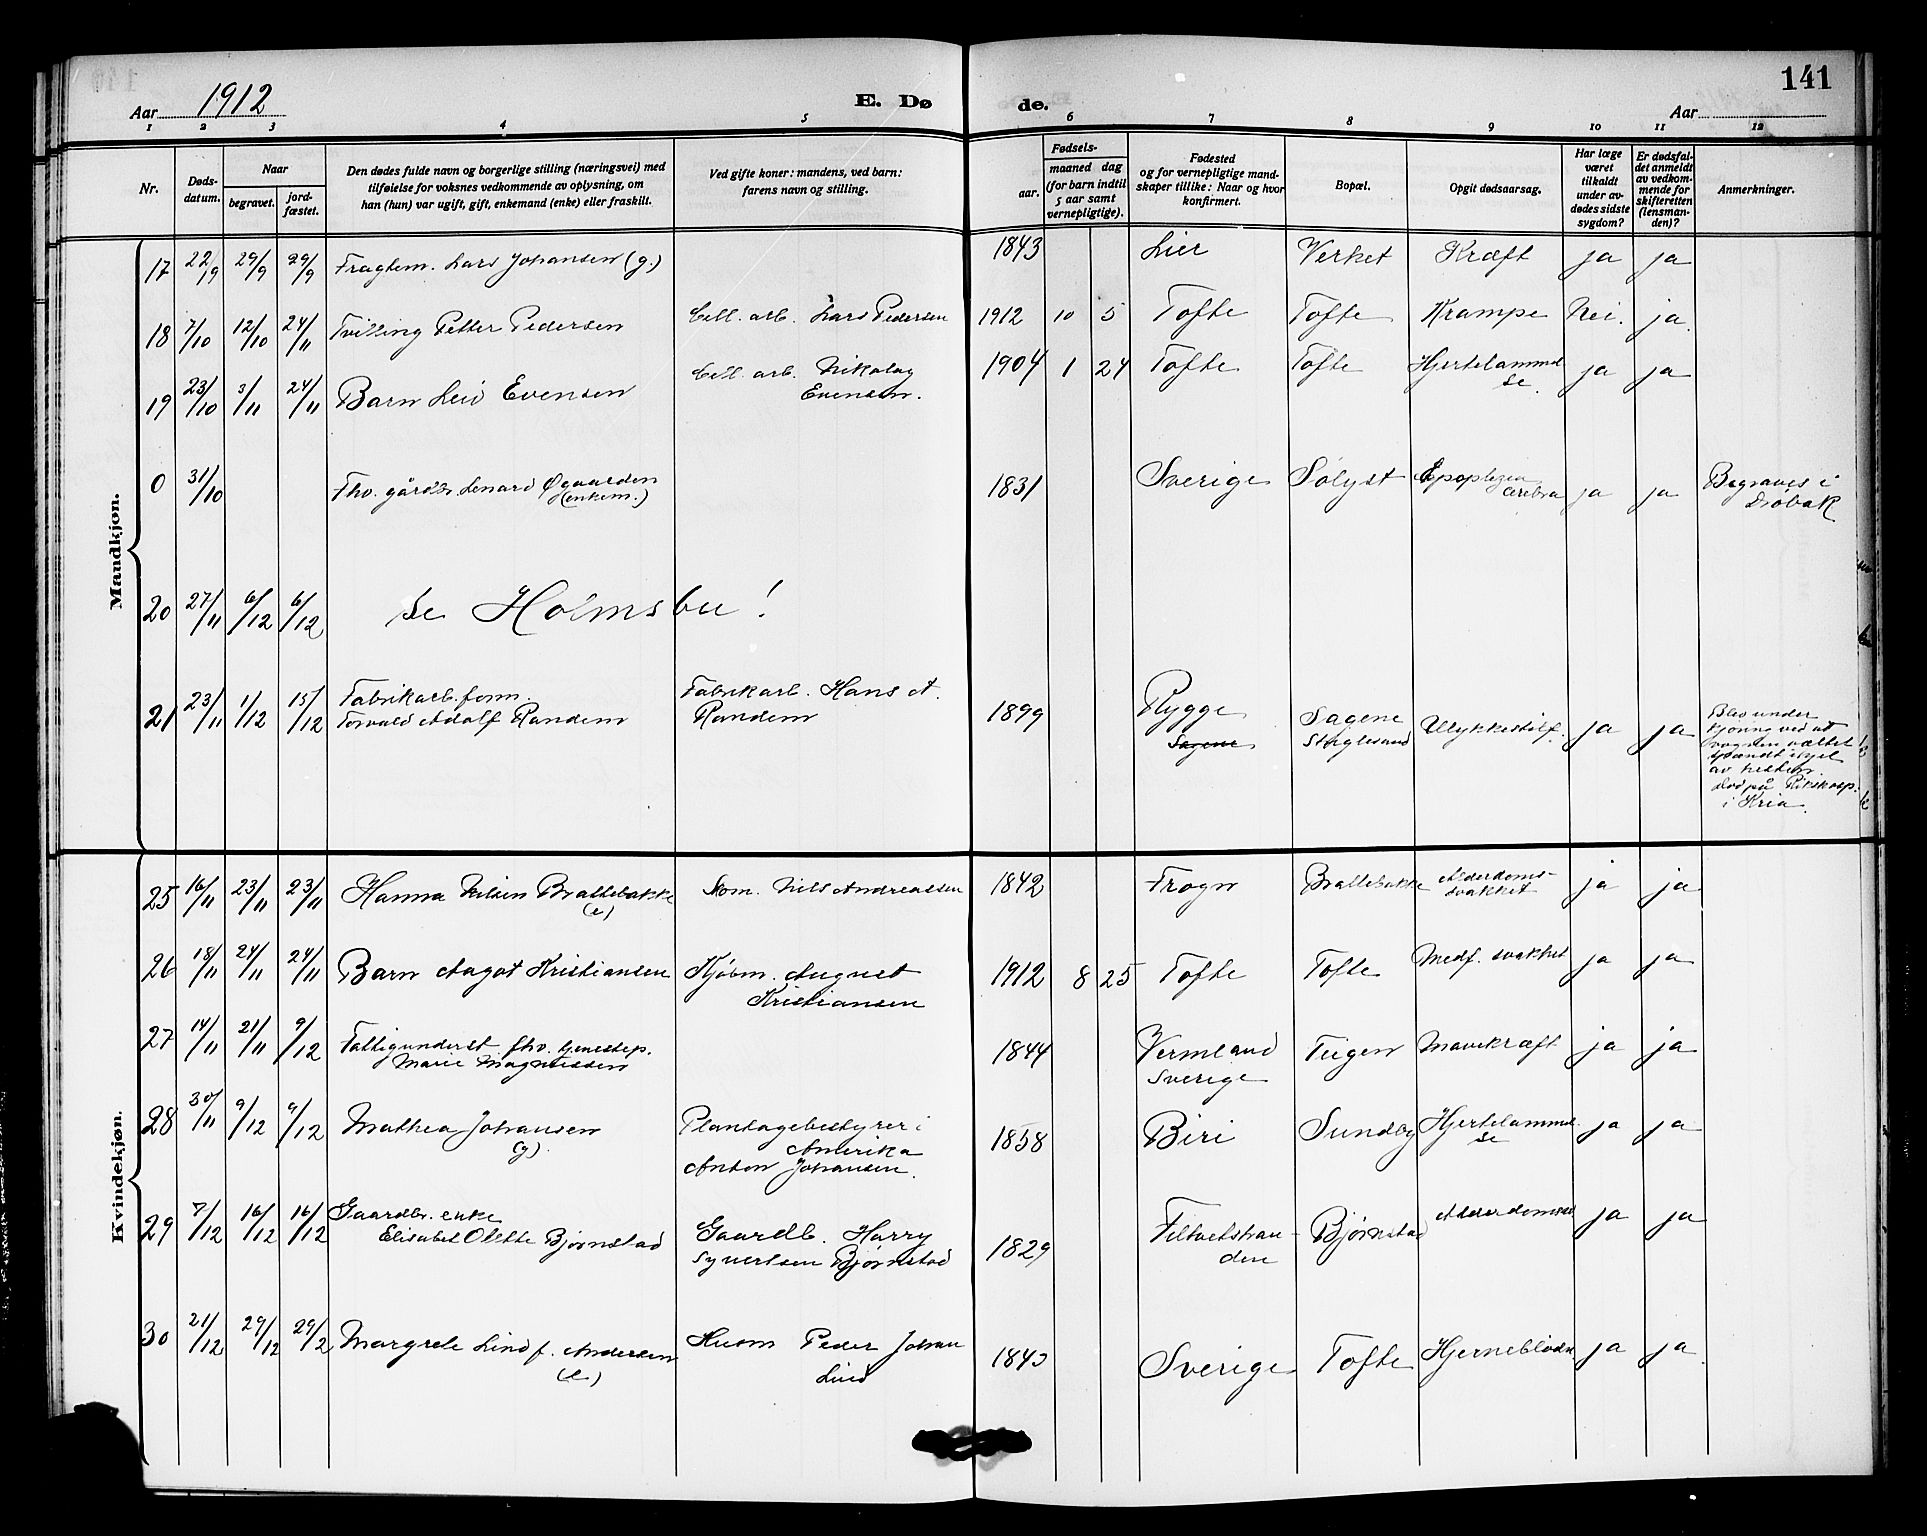 141
Aar 1912
E. Dø
de.
Aar
1 2 3 4 5 6 7 8 9 10 11 12
Nr.
Døds-
datum.
Naar
begravet.
jord-
fæstet.
Den dødes fulde navn og borgerlige stilling (næringsvei) med
tilføielse for voksnes vedkommende av oplysning, om
han (hun) var ugift, gift, enkemand (enke) eller fraskilt.
Ved gifte koner: mandens, ved barn:
farens navn og stilling.
Fødsels-
aar.
maaned dag
(for barn indtil
5 aar samt
vernepligtige).
Fødested
og for vernepligtige mand-
skaper tillike: Naar og hvor
konfirmert.
Bopæl.
Opgit dødsaarsag.
Har læge
været
tilkaldt
under av-
dødes sidste
sygdom?
Er dødsfal-
det anmeldt
av vedkom-
mende for
skifteretten
(lensman-
den)?
Anmerkninger.
Mandkjøn.
17 22/9 29/9 29/9 Fragtem. Lars Johansen (g.) 1843 Lier Verket Kræft ja ja
18 7/10 12/10 24/11 Tvilling Petter Pedersen Cell. arb. Lars Pedersen 1912 10 5 Tofte Tofte Krampe Nei. ja.
19 23/10 3/11 24/11 Barn Leif Evensen Cell. arb. Nikolay
Evensen. 1904 1 24 Tofte Tofte Hjertelammel
se ja ja
0 31/10 Fhv. gårdbr. Lenard Øgaarden
(enkem.) 1831 Sverige Sølyst Apoplegia
cerebra ja ja Begraves i
Drøbak
20 27/11 6/12 6/12 se Holmsbu!
21 23/11 1/12 15/12 Fabrikarb. form.
Torvald Adolf Randem Fabrikarb. Hans A.
Randem 1899 Rygge
Sagene Sagene
Stiglesand Ulykkestilf. ja ja Blev under
kjøring ved at
vognen væltet
spændt ihjel
av hesten.
død på Rikshosp.
i Kria.
Kvindekjøn.
25 16/11 23/11 23/11 Hanna Nilsen Brattebakke
(e) Skom. Nils Andreassen 1842 Frogn Brattebakke Alderdoms-
svakket ja ja
26 18/11 24/11 24/11 Barn Aagot Kristiansen Kjøbm. August
Kristiansen 1912 8 25 Tofte Tofte Medf. svakhet ja ja
27 14/11 21/11 9/12 Fattigunderst. fhv. tjenestep.
Marie Magnussen 1844 Vermland
Sverige Teigen Mavekræft ja ja
28 30/11 9/12 9/12 Mathea Johansen
(g). Plantagebestyrer i
Amerika
Anton Johansen. 1858 Biri Sundby Hjertelammel
se ja ja
29 7/12 16/12 16/12 Gaardbr. enke
Elisabet Olette Bjørnstad Gaardb. Harry
Syvertsen Bjørnstad 1829 Filtvetstran-
den Bjørnstad ja ja
30 21/12 29/12 29/12 Margrete Lind f. Andersen
(e.) Husm Peder Johan
Lind Sverige Tofte Hjerneblødn. ja ja